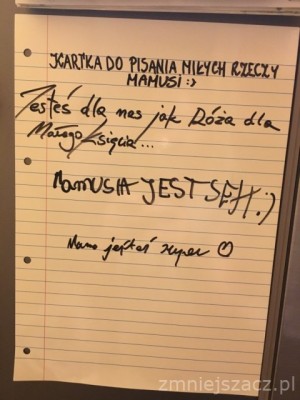 KARTKA DO PISANIA MIŁYCH RZECZY
MAMUSI :)
Jesteś dla nas jak Róża dla
Małego Księcia...
MAMUSIA JEST SEXI :)
Mamo jesteś super ☺
zmniejszacz.pl